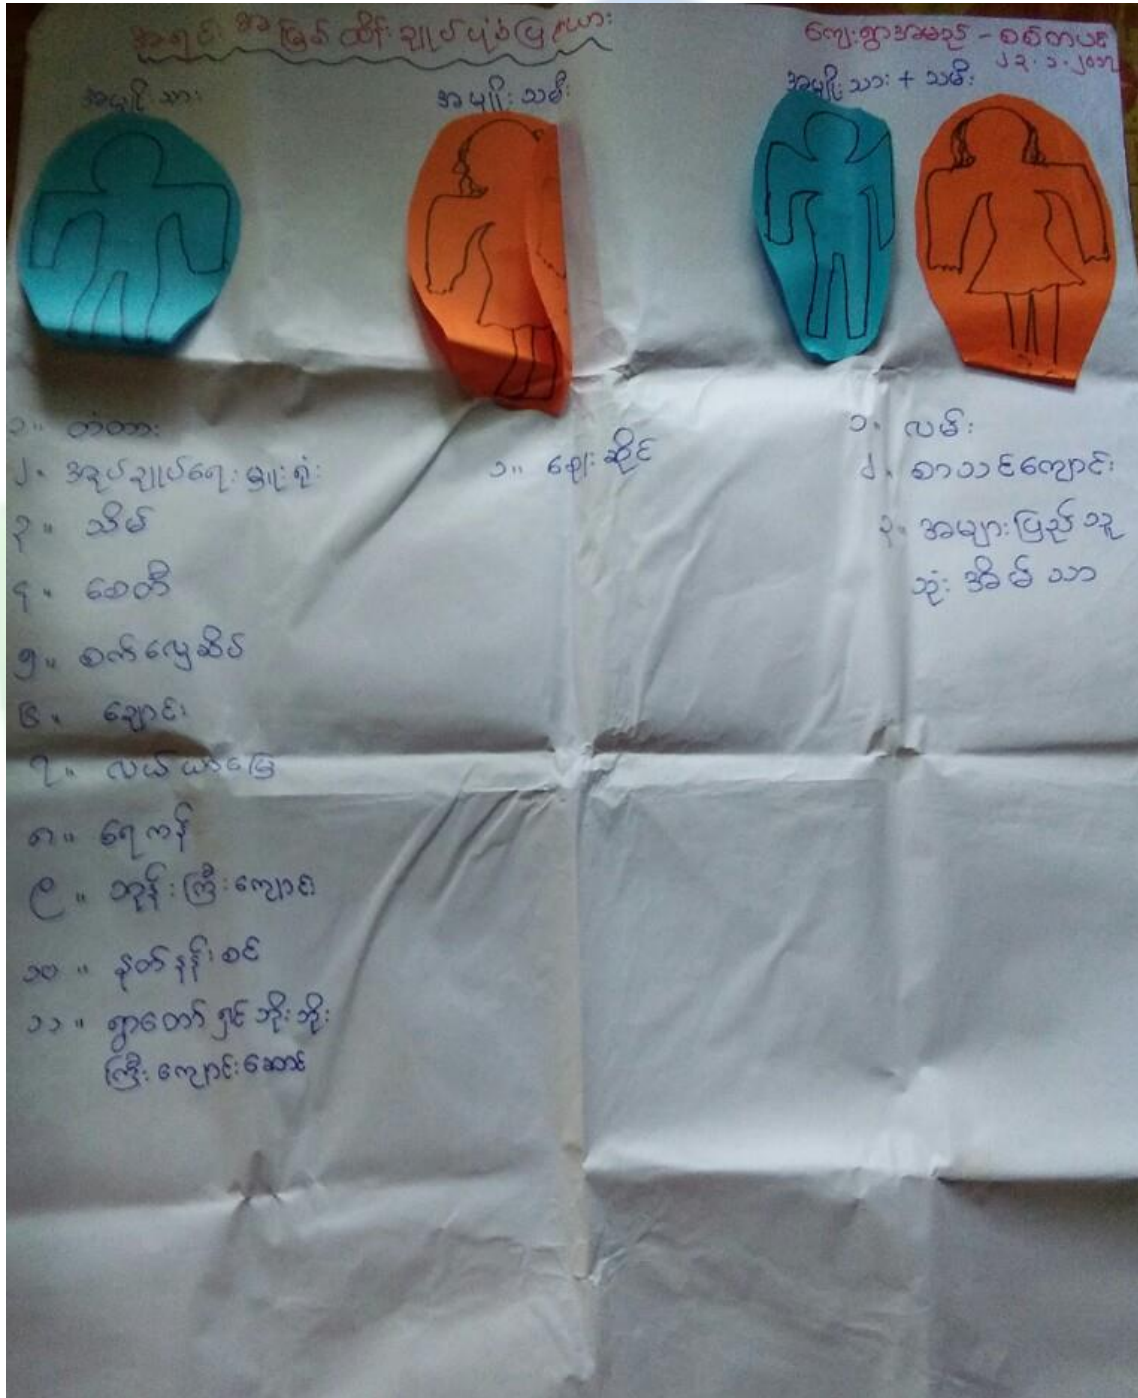 အရင်း အမြစ် ထိန်းချုပ်ပုံပြဇယား
ကျေးရွာအမည် - စစ်ကပင်
၂၃.၁.၂၀၁၇
အမျိုးသား
အမျိုးသမီး
အမျိုးသား + သမီး
၁။ တံတား
၂။ အုပ်ချုပ်ရေးမှူးရုံး
၃။ သိမ်
၄။ စေတီ
၅။ စက်လှေဆိပ်
၆။ ချောင်း
၇။ လယ်ယာမြေ
၈။ ရေကန်
၉။ ဘုန်းကြီးကျောင်း
၁၀။ နတ်နန်းစင်
၁၁။ ရွာတော်ရှင်ဘိုးဘိုး
ကြီးကျောင်းဆောင်
၁။ ဈေးဆိုင်
၁။ လမ်း
၂။ စာသင်ကျောင်း
၃။ အများပြည်သူ
သုံးအိမ်သာ